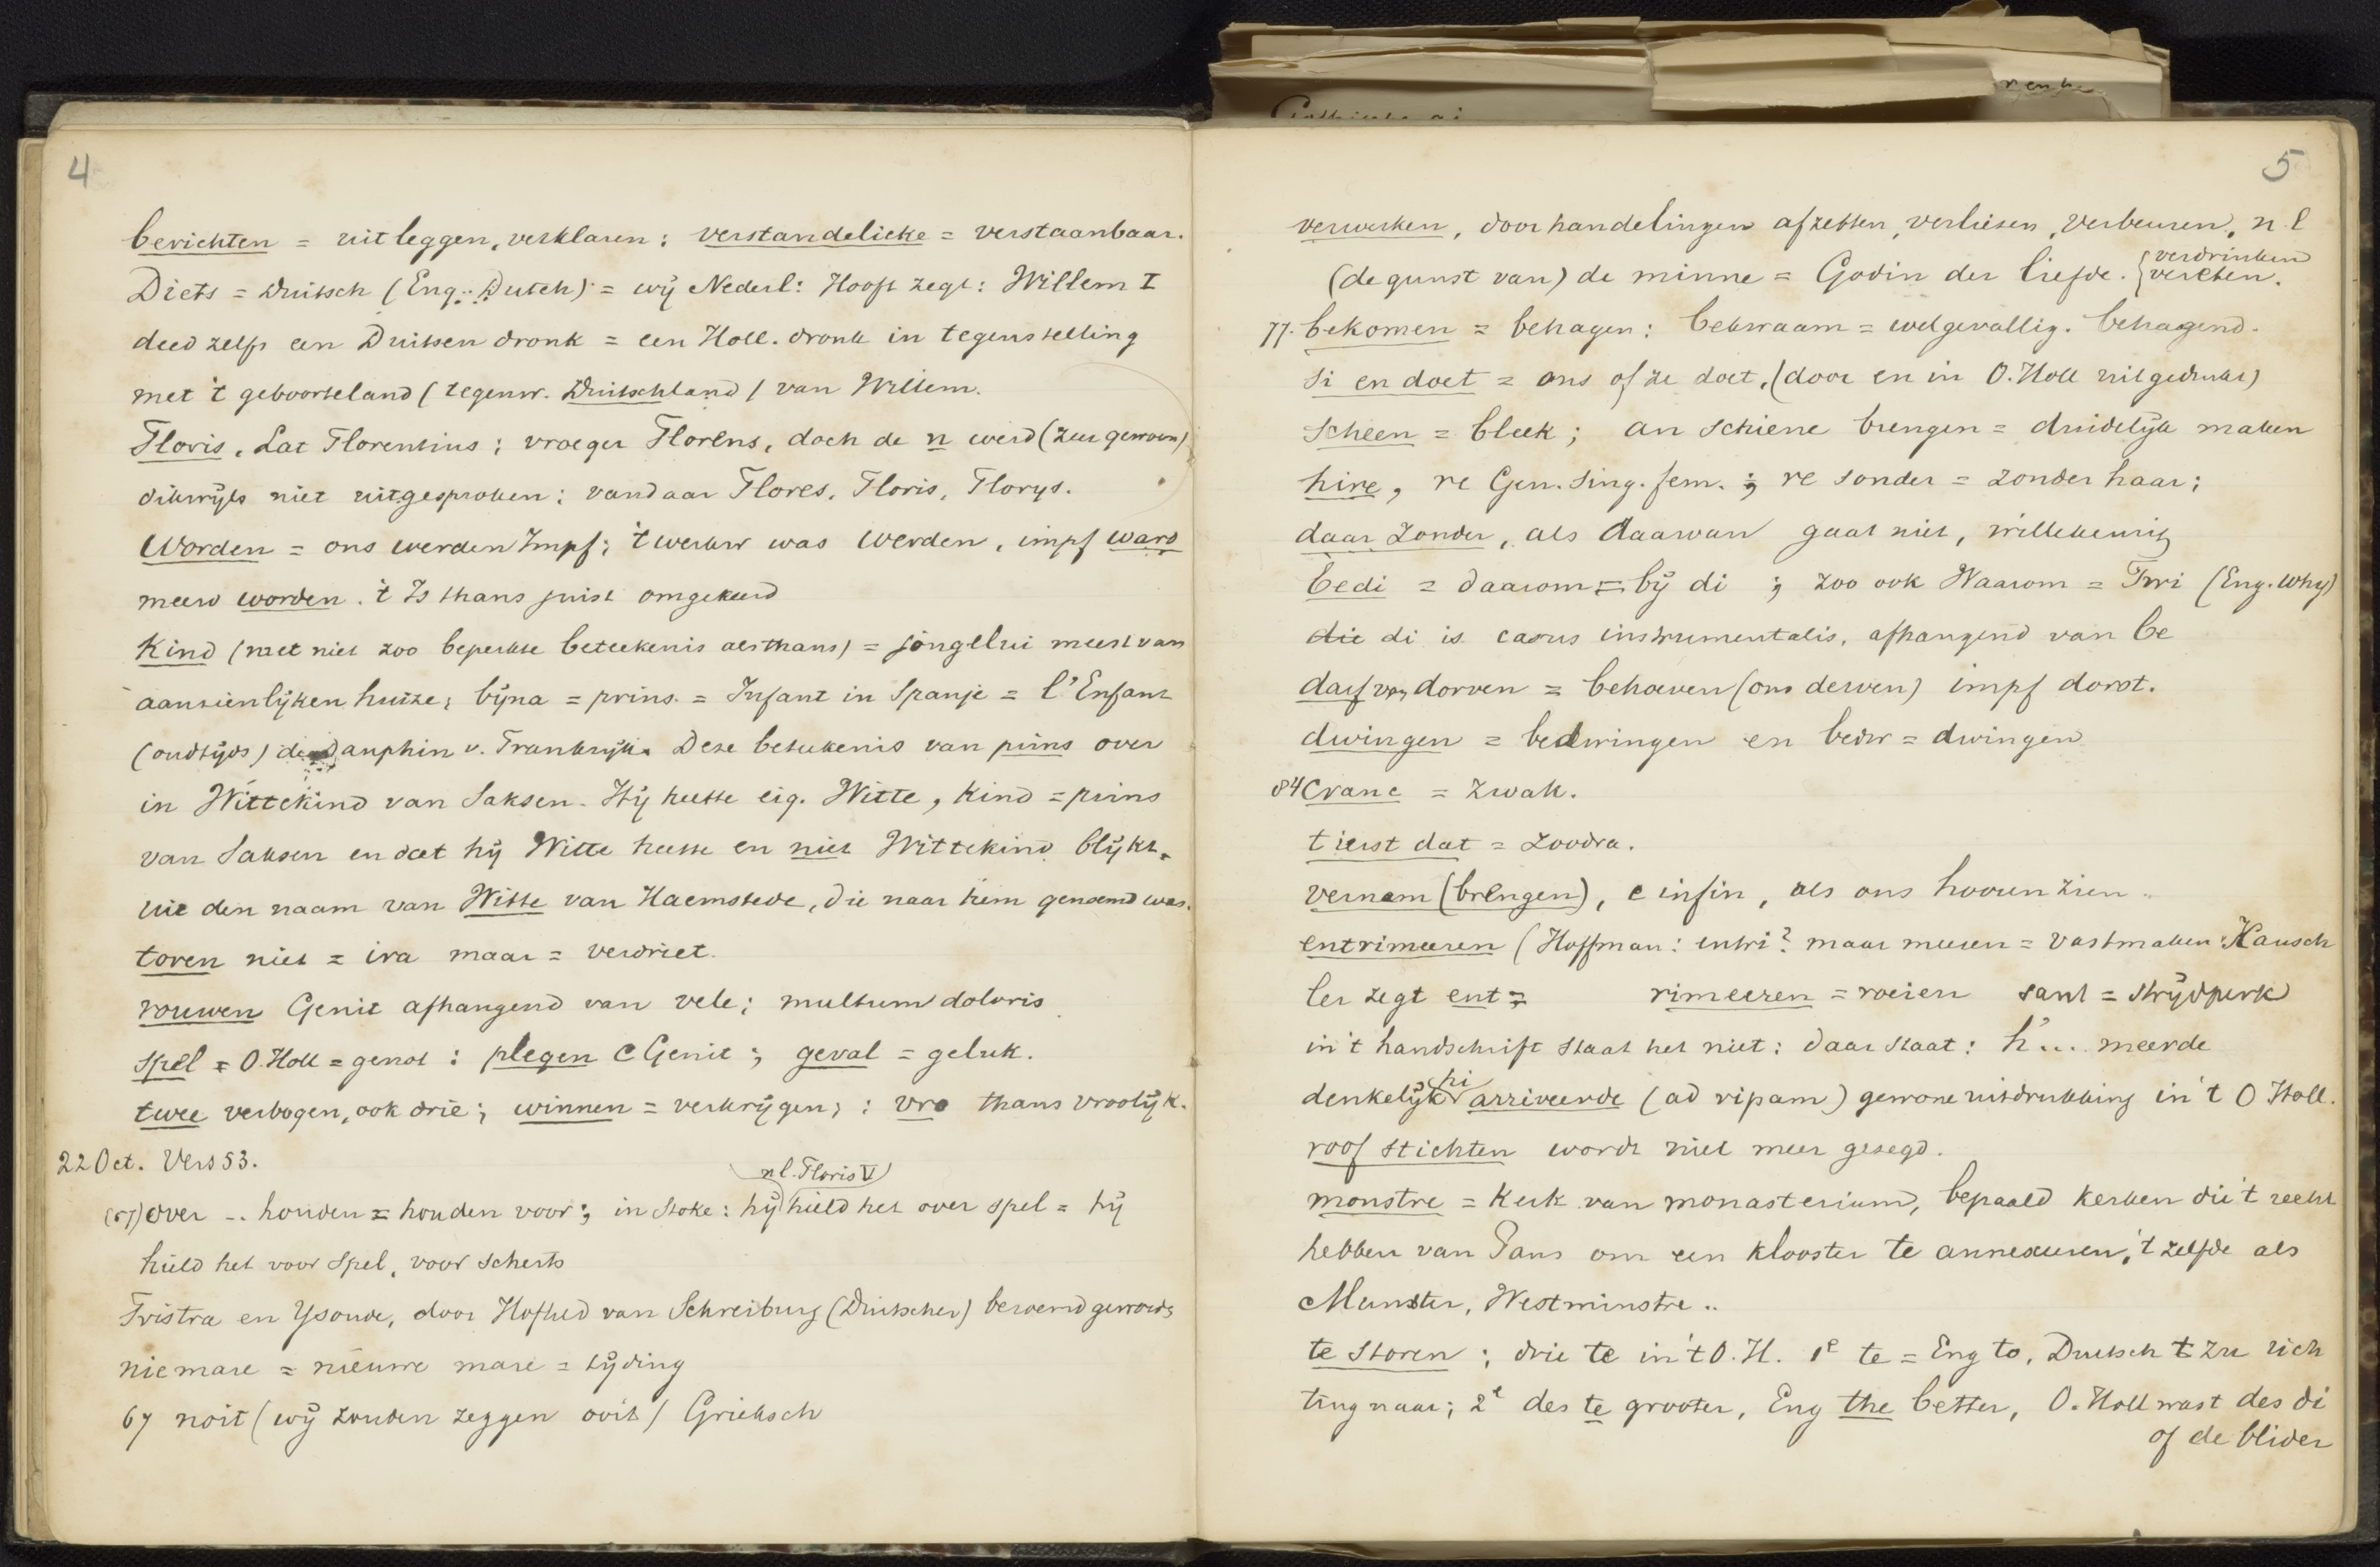 4
berichten = uitleggen, verklaren; verstandelicke = verstaanbaar.
Diets = Duitsch (Eng.: Dutch) = wij Nederl: Hooft zegt: Willem I
deed zelfs een Duitsen dronk = een Holl. dronk in tegenstelling
met 't geboorteland (tegenw. Duitschland) van Willem.
Floris, Lat Florentius; vroeger Florens, doch de n werd (zeer gewoon)
dikwijls niet uitgesproken; vandaar Flores, Floris, Florys.
Worden = ons werden Impf; 't werkw was werden, impf ward
meerv worden. 't Is thans juist omgekeerd
Kind (met niet zoo beperkte beteekenis als thans) = jongelui meest van
aanzienlijken huize; bijna = prins = Infant in Spanje = l'Enfant
(oudtijds) de Dauphin v. Frankrijk. Deze beteekenis van prins over
in Wittekind van Saksen. Hij heette eig. Witte, kind = prins
van Saksen en dat hij Witte heette en niet Wittekind blijkt
uit den naam van Witte van Haemstede, die naar hem genoemd was.
toren niet = ira maar = verdriet.
rouwen Genit afhangend van vele; multum doloris
spel = O.Holl = genot: plegen c Genit; geval = geluk.
twee verbogen, ook drie; winnen = verkrijgen; : vro thans vroolijk.
22 Oct. Vers 53.
nl. Floris V
(57) over .. houden = houden voor; in Stoke: hij hield het over spel = hij
hield het voor spel, voor scherts
Tristra en Ysoude, door Hofried van Schreiburg (Duitscher) beroemd geword
niemare = nieuwe mare = tijding
67 noit (wij zouden zeggen ooit) Grieksch
5
verwerken, door handelingen afzetten, verliezen, verbeuren, nl
verdrinken
(de gunst van) de minne = Godin der liefde. vereten.
77. bekomen = behagen: bekwaam = welgevallig. behagend.
si en doet = ons of ze doet, (door en in O.Holl uitgedrukt)
scheen = bleek; an schiene brengen = duidelijk maken
hire, re Gen. Sing. fem.; re sonder = zonder haar;
daar zonder, als daarvan gaat niet, willekeurig
bedi = daarom = bij di ; zoo ook Waarom = Twi (Eng. Why)
die di is casus instrumentalis, afhangend van be
darf van dorven = behoeven (ons derven) impf dorst.
dwingen = bedwingen en bedw = dwingen
84 Cranc = zwak.
tierst dat = zoodra.
vernam (brengen), c infin, als ons hooren zien
entrimeeren (Hoffman: entri? maar meeren = vastmaken: Kausch
ler zegt ent = rimeeren = roeien sant = strijdperk
in 't handschrift staat het niet: daar staat: h'... meerde
hi
denkelijk arriveerde (ad ripam) gewone uitdrukking in 't O Holl.
roof stichten wordt niet meer gezegd.
monstre = kerk van monasterium, bepaald kerken die 't recht
hebben van Paus om een klooster te annexeeren, 't zelfde als
Munster, Westminstre ..
te storen ; drie te in 't O.H. 1e te = Eng to, Duitsch zu rich
ting naar; 2e des te grooter, Eng the better, O.Holl wast des di
of de blider